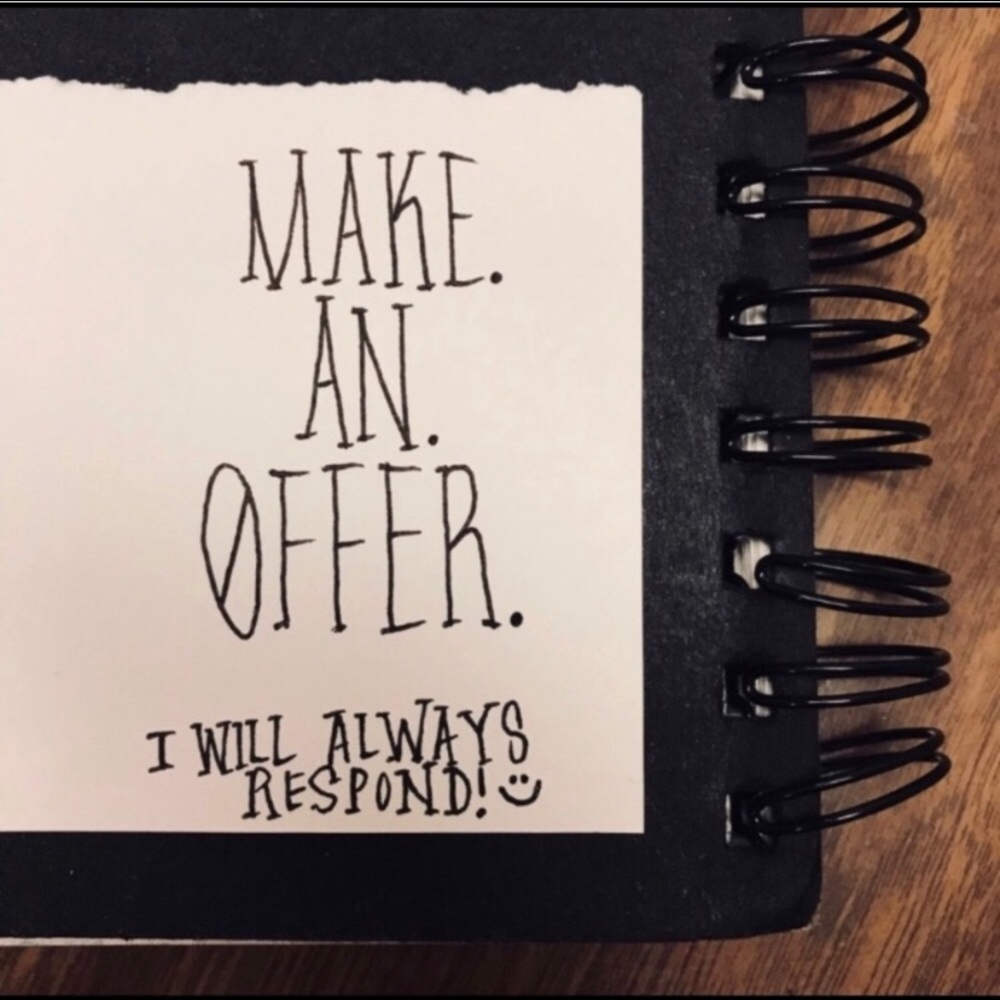 MAKE.
AN.
ØFFER.
I WILL ALWAYS
RESPOND! :)